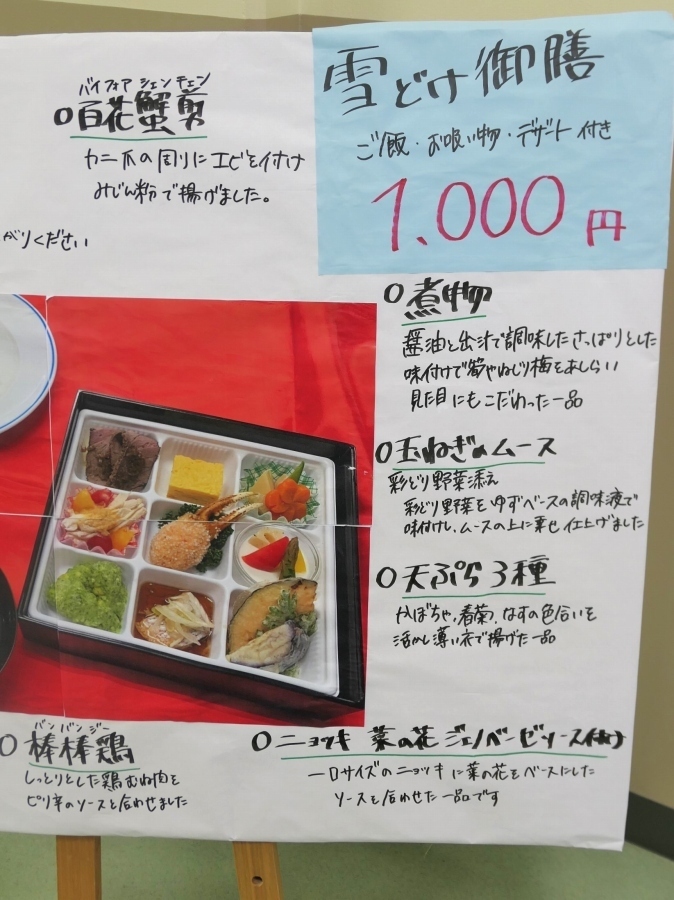 雪どけ御膳
ご飯・お吸い物・デザート付き
1.000円
バイフォア シェン チェン
○百花蟹剪
カニ爪の周りにエビを付け
みじん粉で揚げました。
がりください
○煮物
醤油と出汁で調味したさっぱりとした
味付けで筍やねじり梅をあしらい
見た目にもこだわった一品
○玉ねぎのムース
彩どり野菜添え
彩どり野菜をゆずベースの調味液で
味付けし、ムースの上に乗せ仕上げました
○天ぷら3種
かぼちゃ、春菊、なすの色合いを
活かし薄い衣で揚げた一品
バンバンジー
○棒棒鶏
しっとりとした鶏むね肉を
ピリ辛のソースと合わせました
○ニョッキ 菜の花ジェノベーゼソース付け
一口サイズのニョッキに菜の花をベースにした
ソースを合わせた一品です